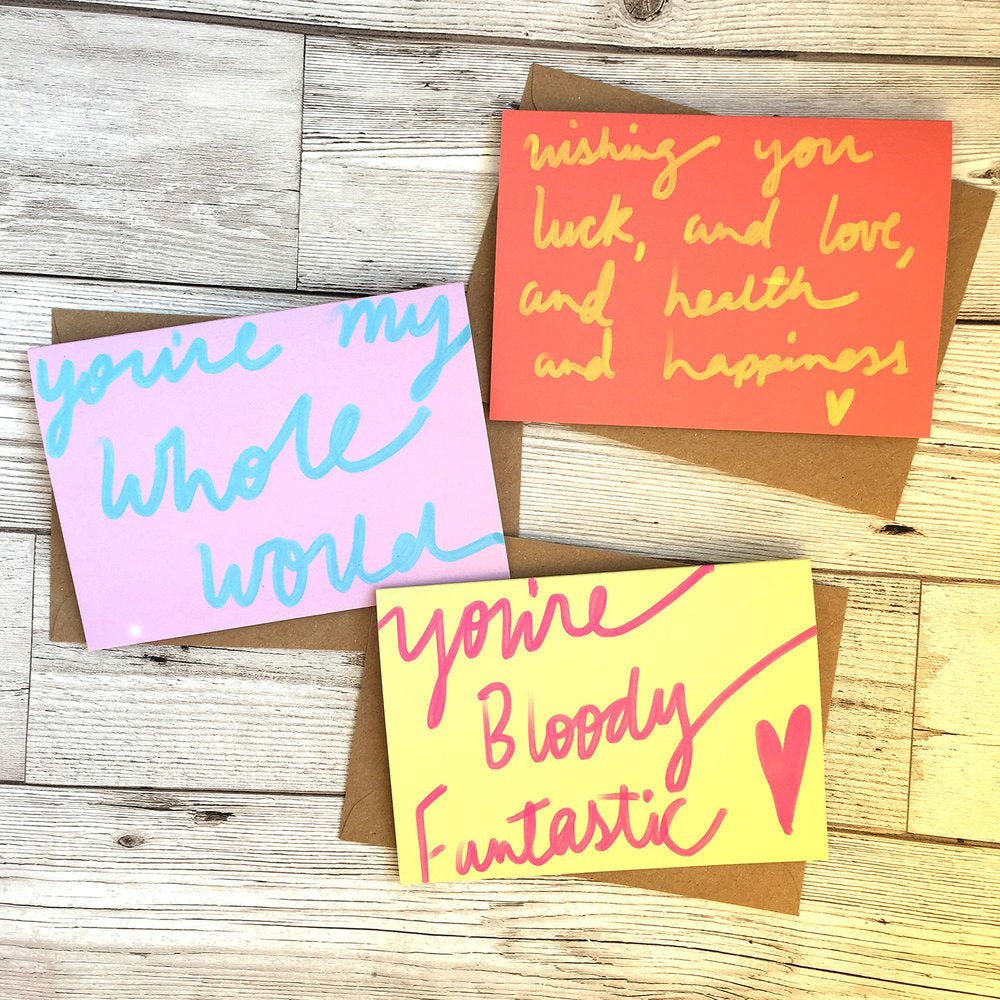 wishing you
luck, and love,
and health
and happiness
you're my
whole
world
you're
Bloody
Fantastic